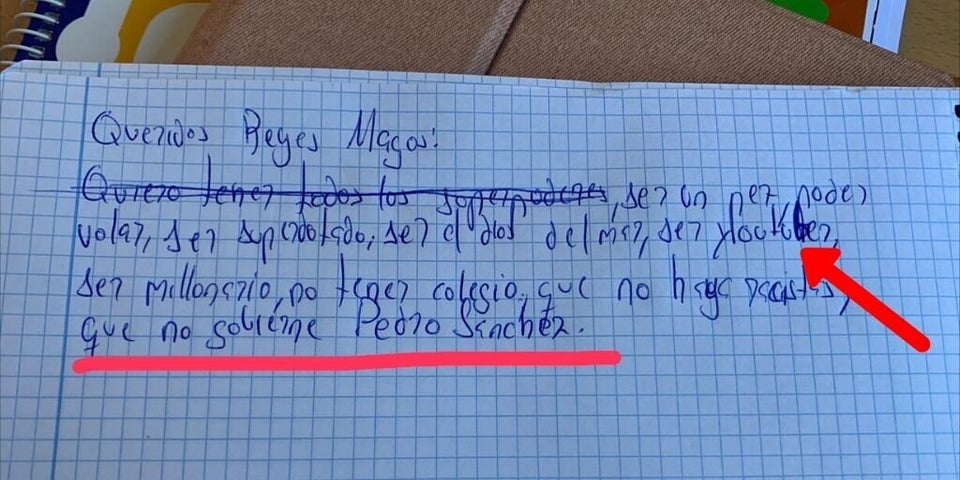 Queridos Reyes Magos:
Quiero tener todos los superpoderes, ser un pez, poder
volar, ser superdotado, ser el dios del mar, ser youtuber,
ser millonario, no tener colegio, que no haya racistas,
que no gobierne Pedro Sánchez.